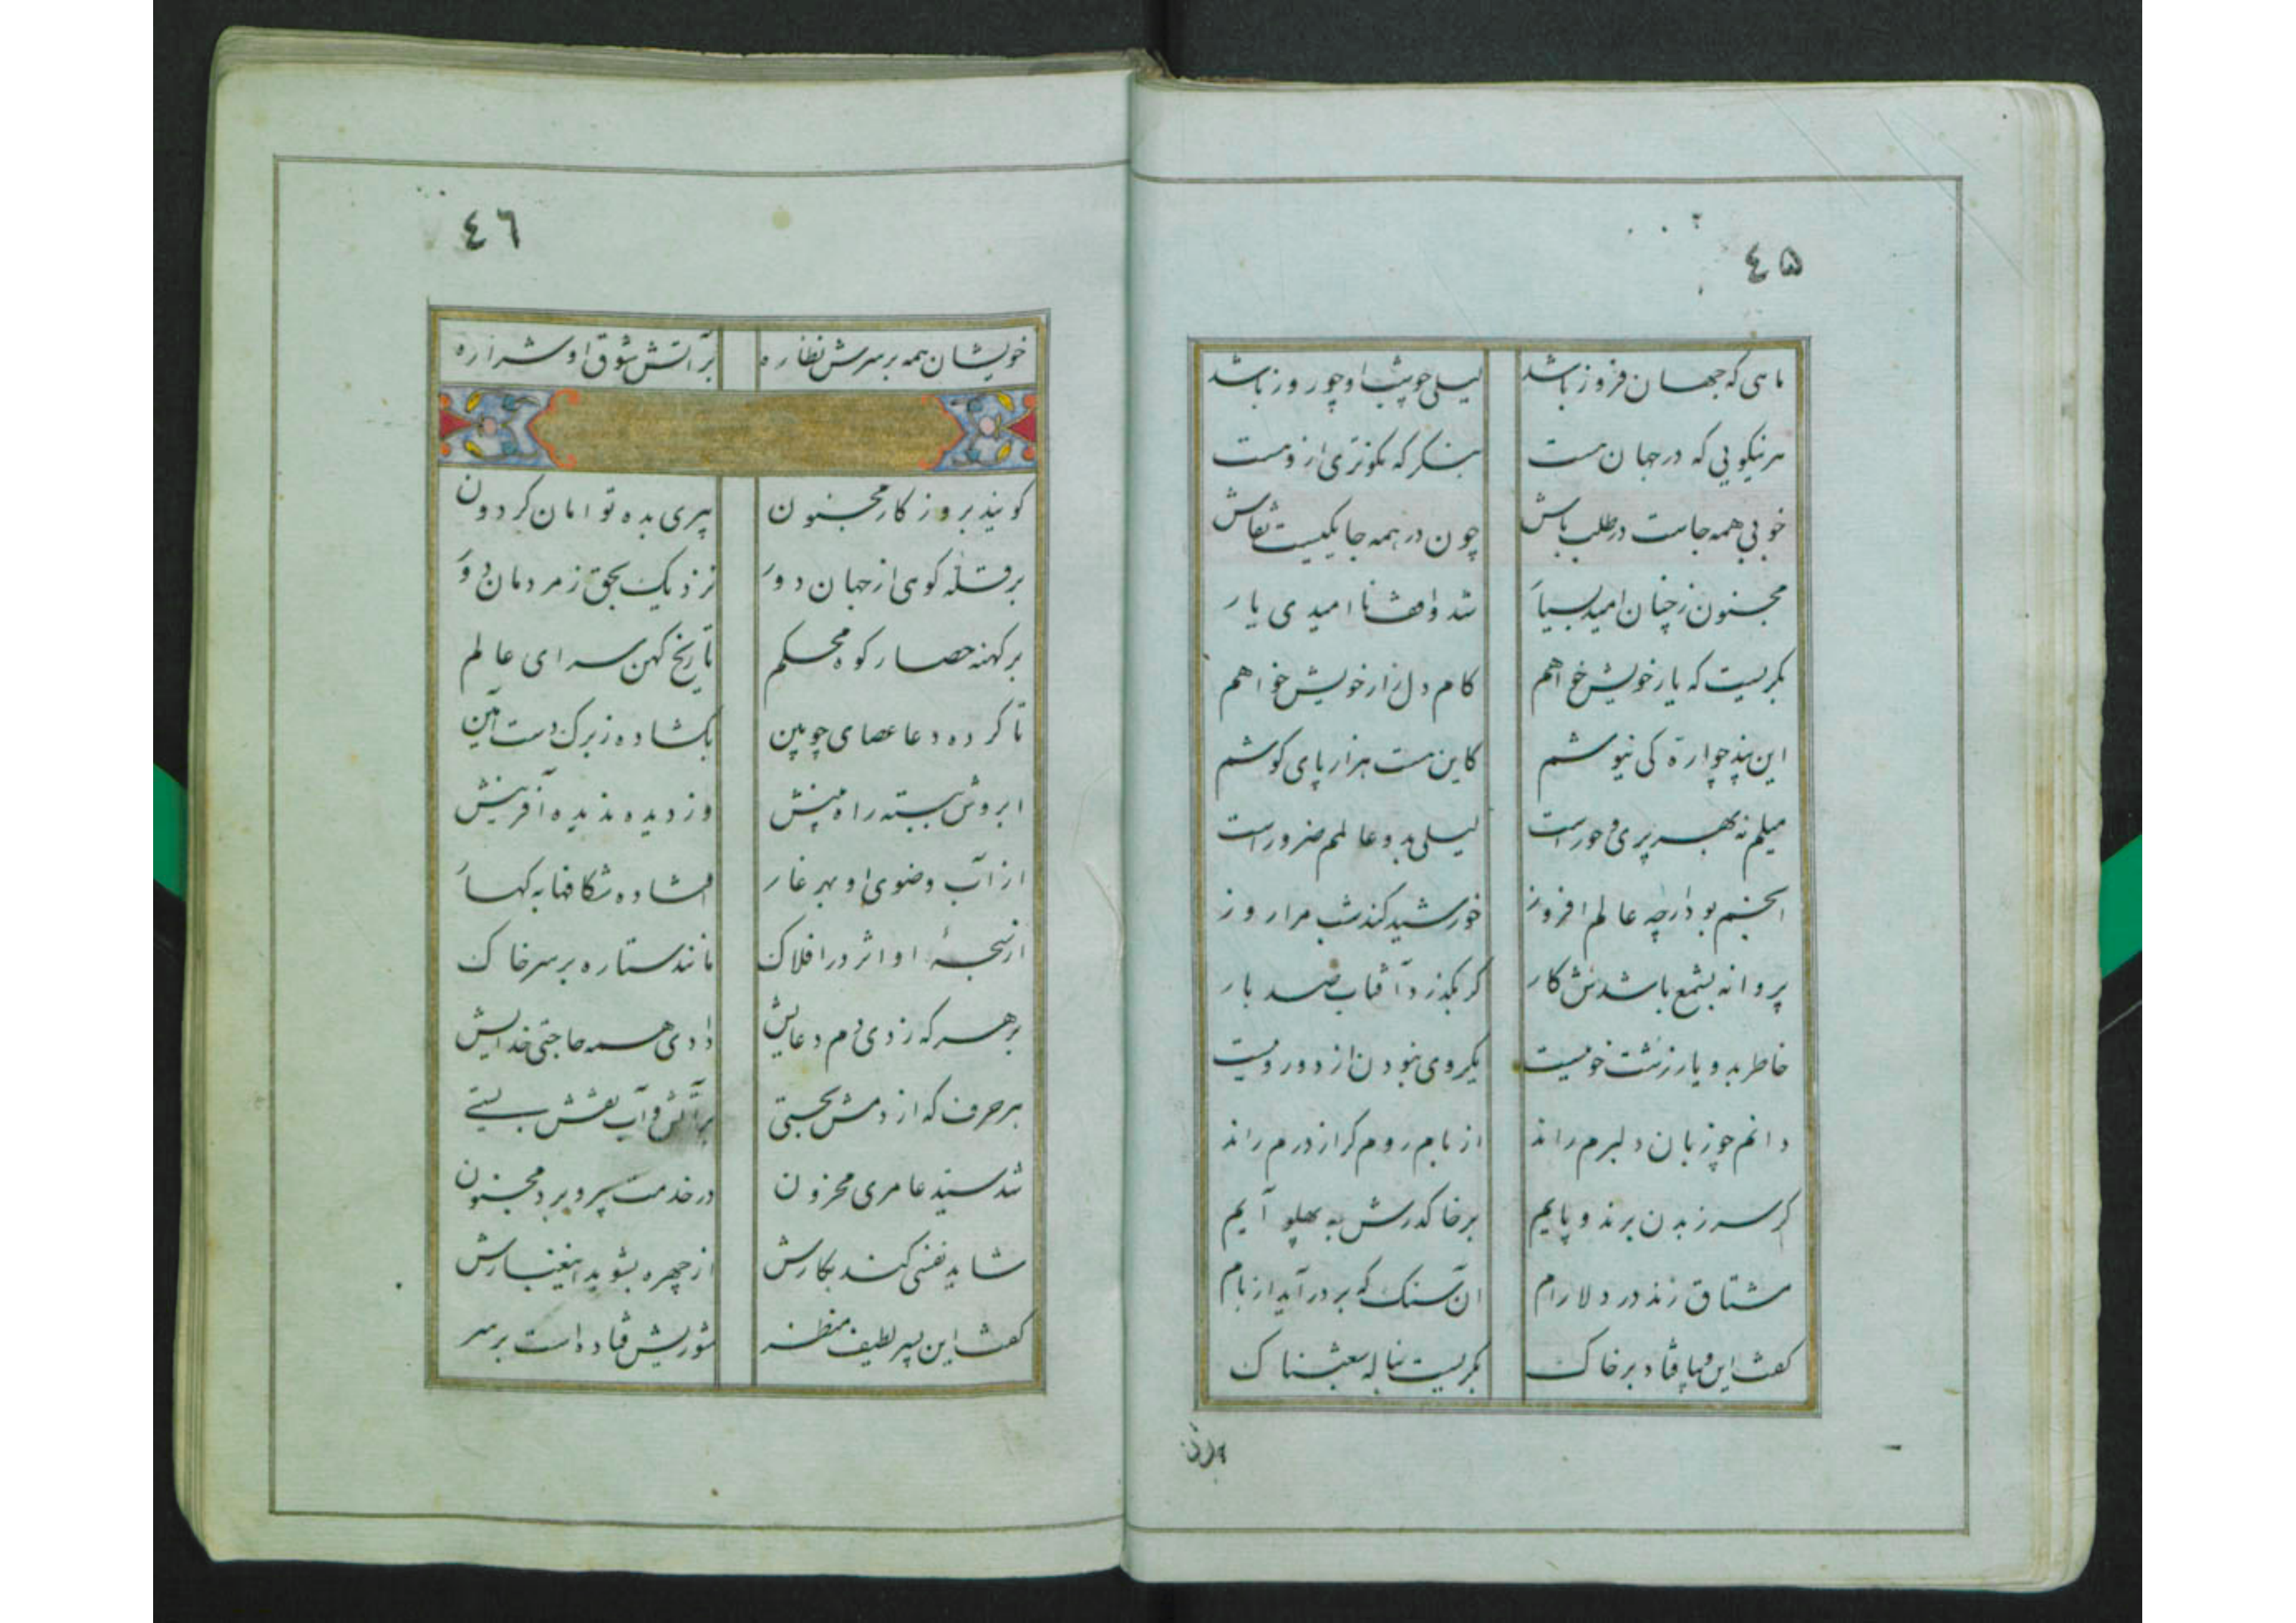 ٤۵
ماهی که جهان فروز باشد لیلی چو شب او چو روز باشد
هر نیکویی که در جهان هست بنگر که نکوتری ازو هست
خوبی همه جاست در طلب باش چون در همه جا یکیست نقاش
مجنون ز چنان امید بسیار شد وافشا ناامیدی یار
بگریست که یار خویش خواهم کام دل زار خویش خواهم
این پند چو اره کی نیوشم کاین هست هزار پای گوشم
میلم نه بهر پری و حورست لیلی بدو عالمم ضرورست
انجم بود ارچه عالم افروز خورشید کند شب مرا روز
پروانه بشمع باشدش کار گر بگذرد آفتاب صد بار
خاطر بدو یار زشت خوییست یکروی نبودن از دوروییست
دانم چو زبان دلبرم راند از بام روم گر از درم راند
گر سر ز بدن برند و پایم بر خاک درش به پهلو آیم
مشتاق زند در دلارام آن سنگ که بر در آید از بام
گفت این و بپا فتاد بر خاک بگریست بناله شغبناک
٤٦
خویشان همه بر سرش نظاره بر آتش شوق او شراره
گویند بروزگار مجنون پیری بده تو امان گردون
بر قله کوهی از جهان دور نزدیک بحق ز مردمان دور
بر کهنه حصار کوه محکم تاریخ کهن سرای عالم
تا کرده دعا عصای چوبین بگشاده ز برگ دست آمین
ابروش ببسته راه بینش وز دیده ندیده آفرینش
از آب وضوی او بهر غار افتاده شکافها به کهسار
از سجدهٔ او اثر در افلاک مانند ستاره بر سر خاک
بر هر که زدی دم دعایش دادی همه حاجتی خدایش
هر حرف که از دمش بجستی بر آتش و آب نقش بستی
شد سید عامری محزون در خدمت پیر و برد مجنون
شاید نفسی کند بکارش از چهره بشوید این غبارش
گفت این پسر لطیف منظر شوریش فتاده است بر سر